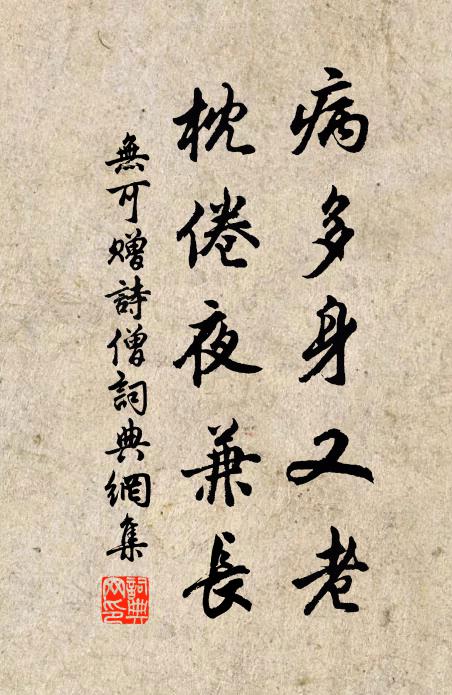 病多身又老
枕倦夜兼長
無可贈詩僧詞典網集
詞典
网印